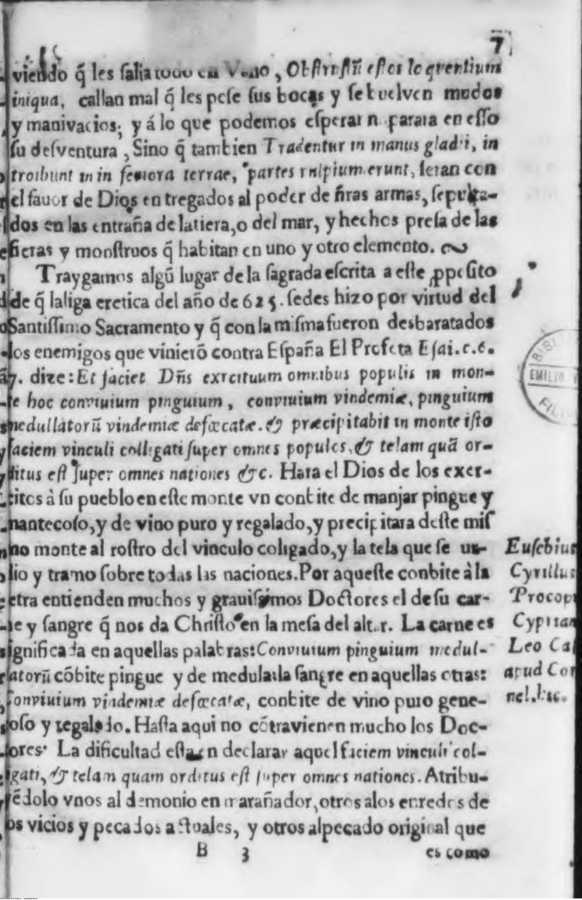 7
viendo q̃ les salia todo en Vano, Obstrustũ est os loquentium
iniqua, callan mal q̃ les pese sus bocas y se buelven mudos
y manivacios; y á lo que podemos esperar n parara en esso
su desventura, Sino q̃ tambien Tradentur in manus gladii, in
troibunt in in feriora terrae, partes vulpium erunt, seran con
el favor de Dios entregados al poder de ñras armas, sepulta-
dos en las entraña de la tiera, o del mar, y hechos presa de las
fieras y monstruos q̃ habitan en uno y otro elemento.
Traygamos algũ lugar de la sagrada escrita a este pposito
de q̃ la liga eretica del año de 625. sedes hizo por virtud del
Santissimo Sacramento y q̃ con la misma fueron desbaratados
los enemigos que vinierõ contra España El Profeta Esai. c. 6.
7. dize: Et faciet Dñs exrcituum omnibus populis in mon-
te hoc convivium pinguium, convivium vindemiæ, pinguium
medullatorũ vindemiæ defæcatæ. & præcipitabit in monte isto
faciem vinculi colligati super omnes populos, & telam quã or-
ditus est super omnes nationes &c. Hara el Dios de los exer-
citos à su pueblo en este monte vn conbite de manjar pingue y
mantecoso, y de vino puro y regalado, y precipitara deste mis
mo monte al rostro del vinculo coligado, y la tela que se ur-
dio y tramo sobre todas las naciones. Por aqueste conbite à la
letra entienden muchos y gravissimos Doctores el de su car-
ne y sangre q̃ nos da Christo en la mesa del altar. La carne es
significada en aquellas palabras: Convivium pinguium medul-
latorũ cõbite pingue y de medulada sangre en aquellas otras:
Convivium vindemiæ defæcatæ, conbite de vino puro gene-
roso y regalado. Hasta aqui no cõtravienen mucho los Doc-
tores. La dificultad esta en declarar aquel faciem vinculi col-
ligati, & telam quam orditus est super omnes nationes. Atribu-
yẽdolo vnos al demonio en marañador, otros a los enredos de
los vicios y pecados actuales, y otros al pecado original que
B 3 es como
Eusebius
Cyrillus
Procopi
Cyprian
Leo Cas
apud Cor
nel. hic.
BIBLI
EMILIO
FILI